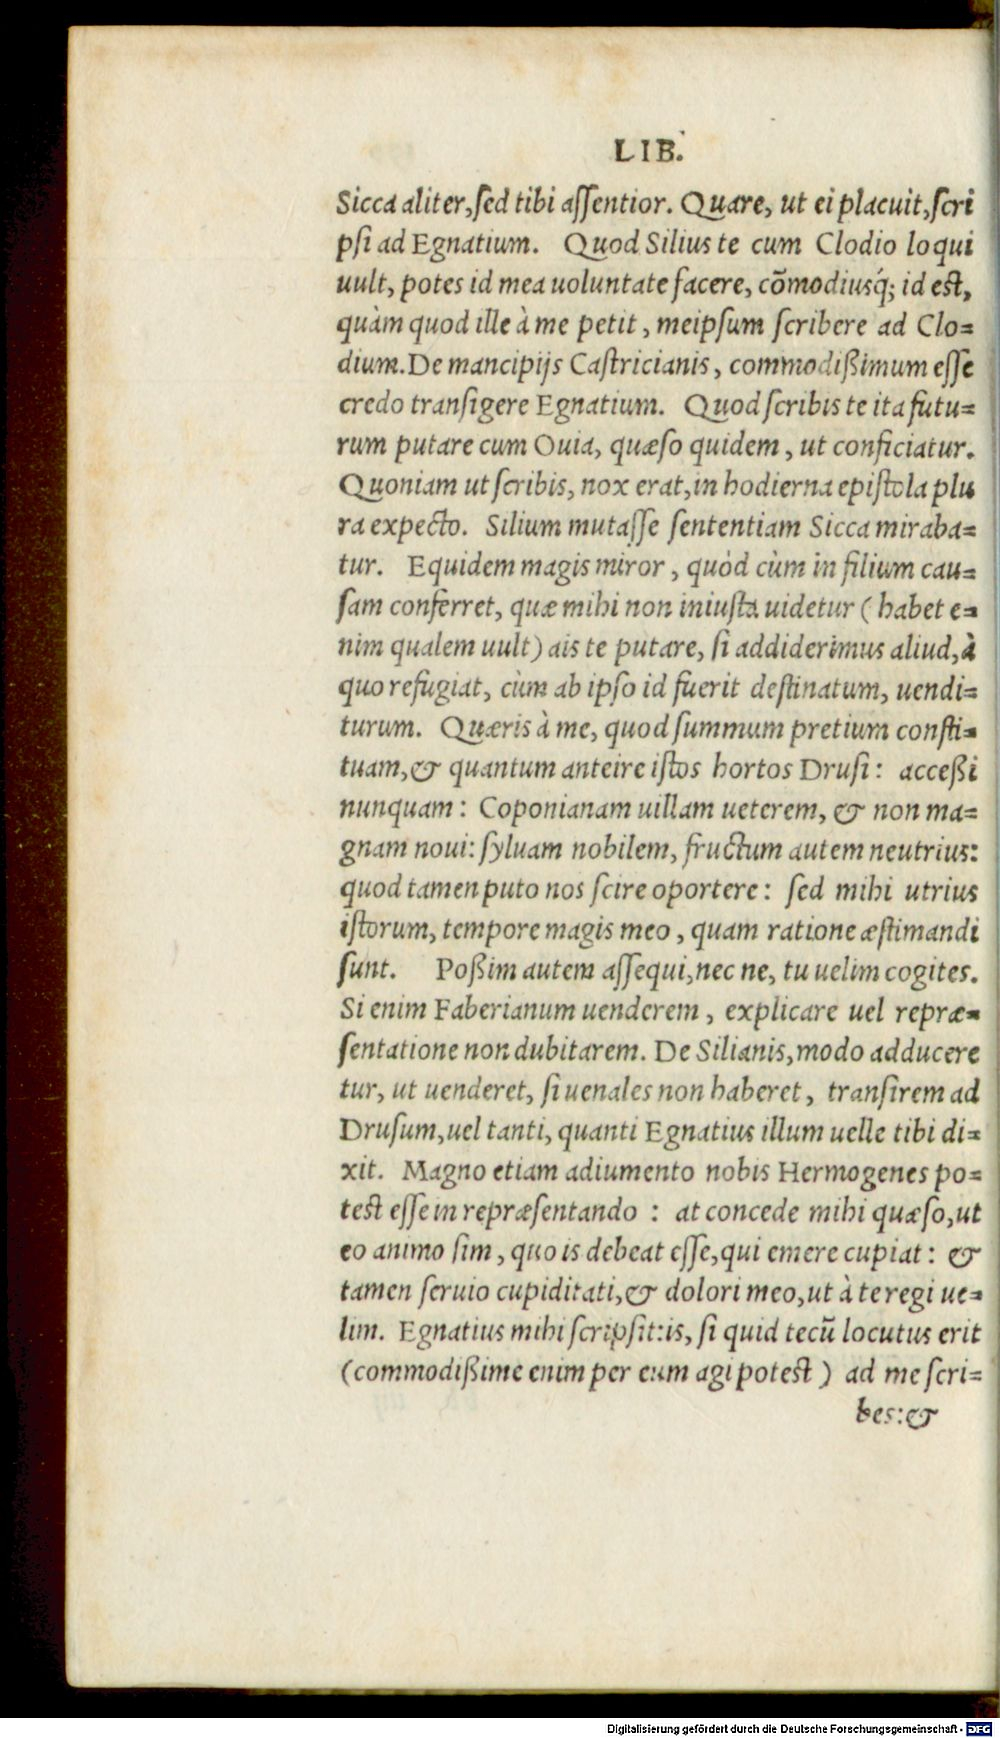 LIB.
Sicca aliter, ſed tibi aſſentior. Quare, ut ei placuit, ſcri
pſi ad Egnatium. Quod Silius te cum Clodio loqui
uult, potes id mea uoluntate facere, cõmodiusq́; id eſt,
quàm quod ille à me petit, meipſum ſcribere ad Clo=
dium. De mancipijs Caſtricianis, commodißimum eſſe
credo tranſigere Egnatium. Quod ſcribis te ita futu=
rum putare cum Ouia, quæſo quidem, ut conficiatur.
Quoniam ut ſcribis, nox erat, in hodierna epiſtola plu
ra expecto. Silium mutaſſe ſententiam Sicca miraba=
tur. Equidem magis miror, quòd cùm in filium cau=
ſam conferret, quæ mihi non iniuſta uidetur (habet e=
nim qualem uult) ais te putare, ſi addiderimus aliud, à
quo refugiat, cùm ab ipſo id fuerit deſtinatum, uendi=
turum. Quæris à me, quod ſummum pretium conſti=
tuam, & quantum anteire iſtos hortos Druſi: acceßi
nunquam: Coponianam uillam ueterem, & non ma=
gnam noui: ſyluam nobilem, fructum autem neutrius:
quod tamen puto nos ſcire oportere: ſed mihi utrius
iſtorum, tempore magis meo, quam ratione æſtimandi
ſunt. Poßim autem aſſequi, nec ne, tu uelim cogites.
Si enim Faberianum uenderem, explicare uel repræ=
ſentatione non dubitarem. De Silianis, modo adducere
tur, ut uenderet, ſi uenales non haberet, tranſirem ad
Druſum, uel tanti, quanti Egnatius illum uelle tibi di=
xit. Magno etiam adiumento nobis Hermogenes po=
teſt eſſe in repræſentando : at concede mihi quæſo, ut
eo animo ſim, quo is debeat eſſe, qui emere cupiat: &
tamen ſeruio cupiditati, & dolori meo, ut à te regi ue=
lim. Egnatius mihi ſcripſit: is, ſi quid tecũ locutus erit
(commodißime enim per eum agi poteſt) ad me ſcri=
bes: &
Digitalisierung gefördert durch die Deutsche Forschungsgemeinschaft - DFG